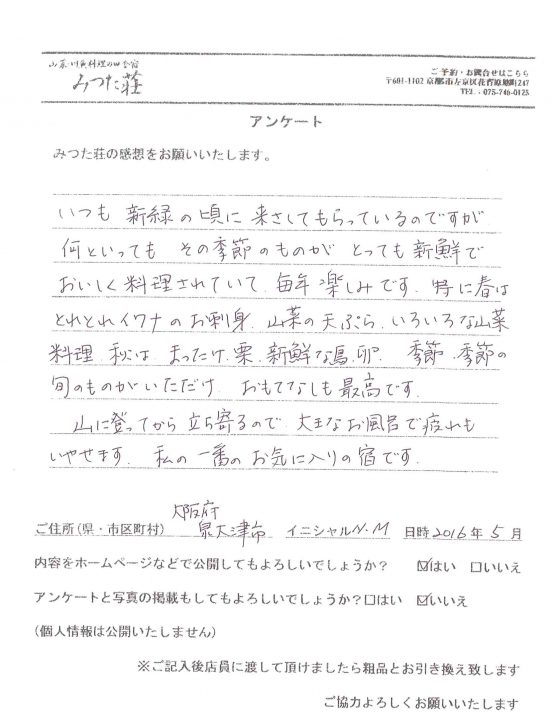 山菜・川魚料理の田舎宿
みつた荘
ご予約・お問合せはこちら
〒601-1102 京都市左京区花脊原地町247
TEL：075-746-0123
アンケート
みつた荘の感想をお願いいたします。
いつも 新緑の頃に 来さしてもらっているのですが
何といっても その季節のものが とっても新鮮で
おいしく料理されていて、毎年 楽しみです。特に春は
とれとれイワナのお刺身、山菜の天ぷら、いろいろな山菜
料理、秋は、まったけ、栗、新鮮な鳥、卵。 季節、季節の
旬のものがいただけ おもてなしも最高です。
山に登ってから 立ち寄るので、大きなお風呂で疲れも
いやせます。 私の一番の お気に入りの宿です。
ご住所(県・市区町村) 大阪府 泉大津市 イニシャルN.M 日時2016年5月
内容をホームページなどで公開してもよろしいでしょうか？ ☑はい □いいえ
アンケートと写真の掲載もしてもよろしいでしょうか？□はい ☑いいえ
(個人情報は公開いたしません)
※ご記入後店員に渡して頂けましたら粗品とお引き換え致します
ご協力よろしくお願いいたします